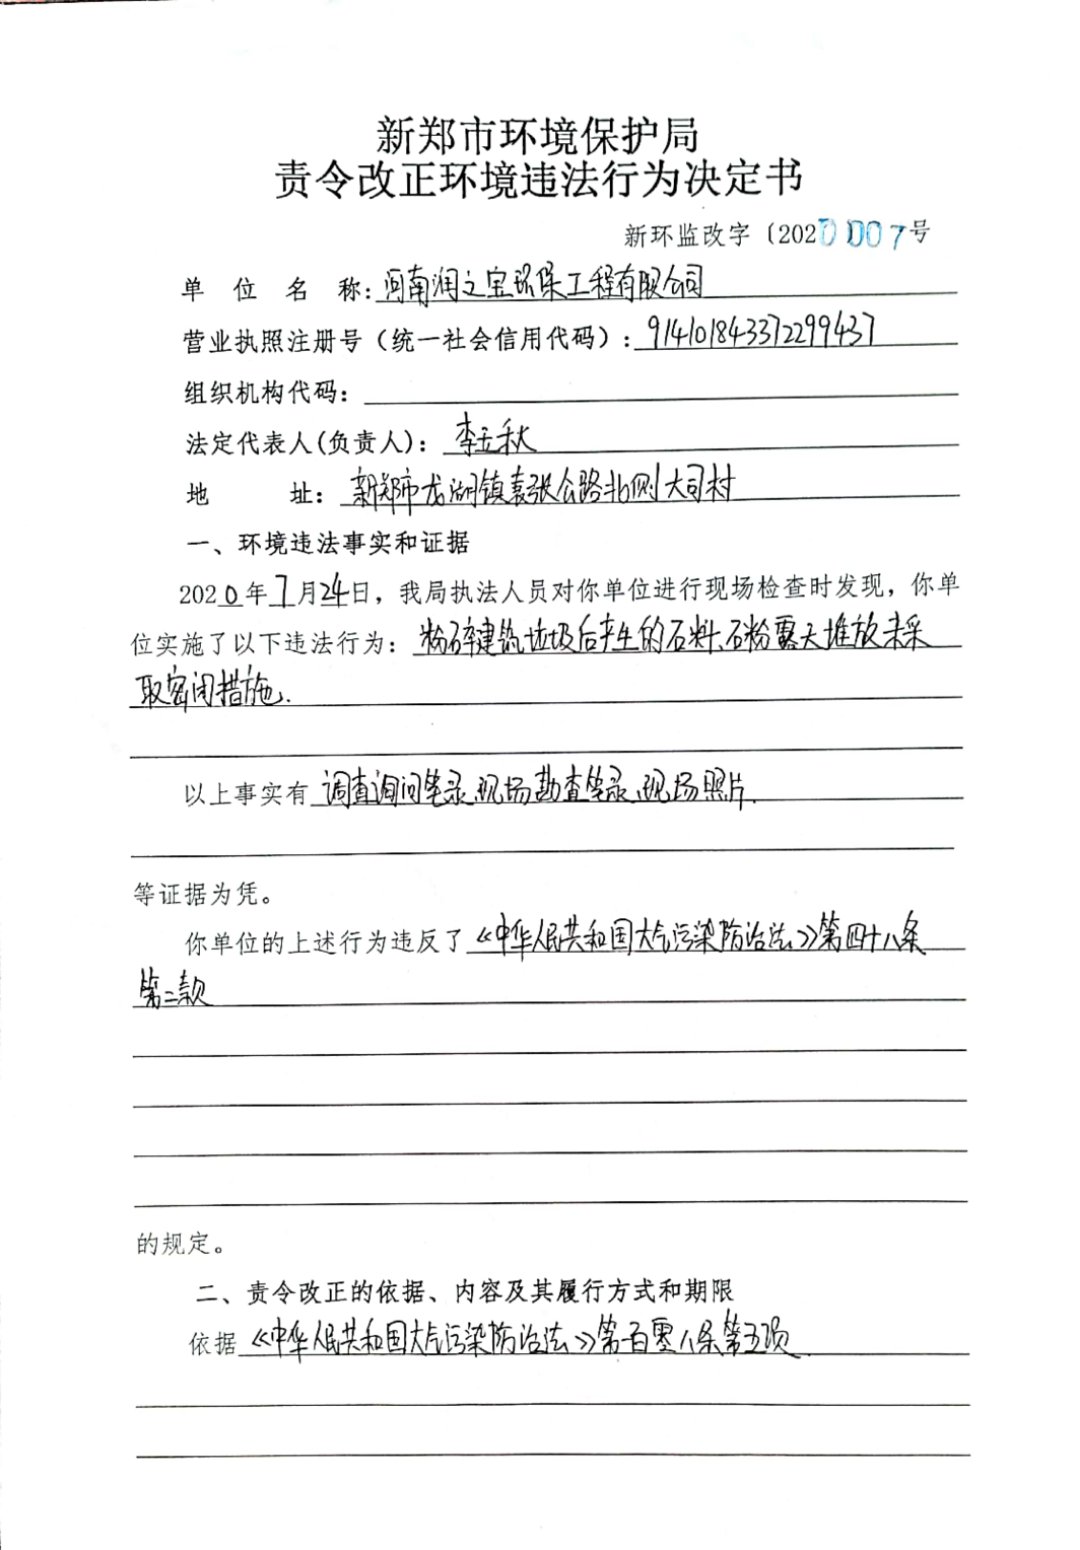 新郑市环境保护局
责令改正环境违法行为决定书
新环监改字〔2020〕007号
单位名称:河南润之宝环保工程有限公司
营业执照注册号(统一社会信用代码):914101843372299437
组织机构代码:
法定代表人(负责人):李玉秋
地址:新郑市龙湖镇袁张公路北侧大司村
一、环境违法事实和证据
2020年7月24日,我局执法人员对你单位进行现场检查时发现,你单
位实施了以下违法行为:粉碎建筑垃圾后产生的石料、石粉露天堆放未采
取密闭措施.
以上事实有调查询问笔录、现场勘查笔录、现场照片.
等证据为凭。
你单位的上述行为违反了《中华人民共和国大气污染防治法》第四十八条
第二款
的规定。
二、责令改正的依据、内容及其履行方式和期限
依据《中华人民共和国大气污染防治法》第一百零八条第五项.